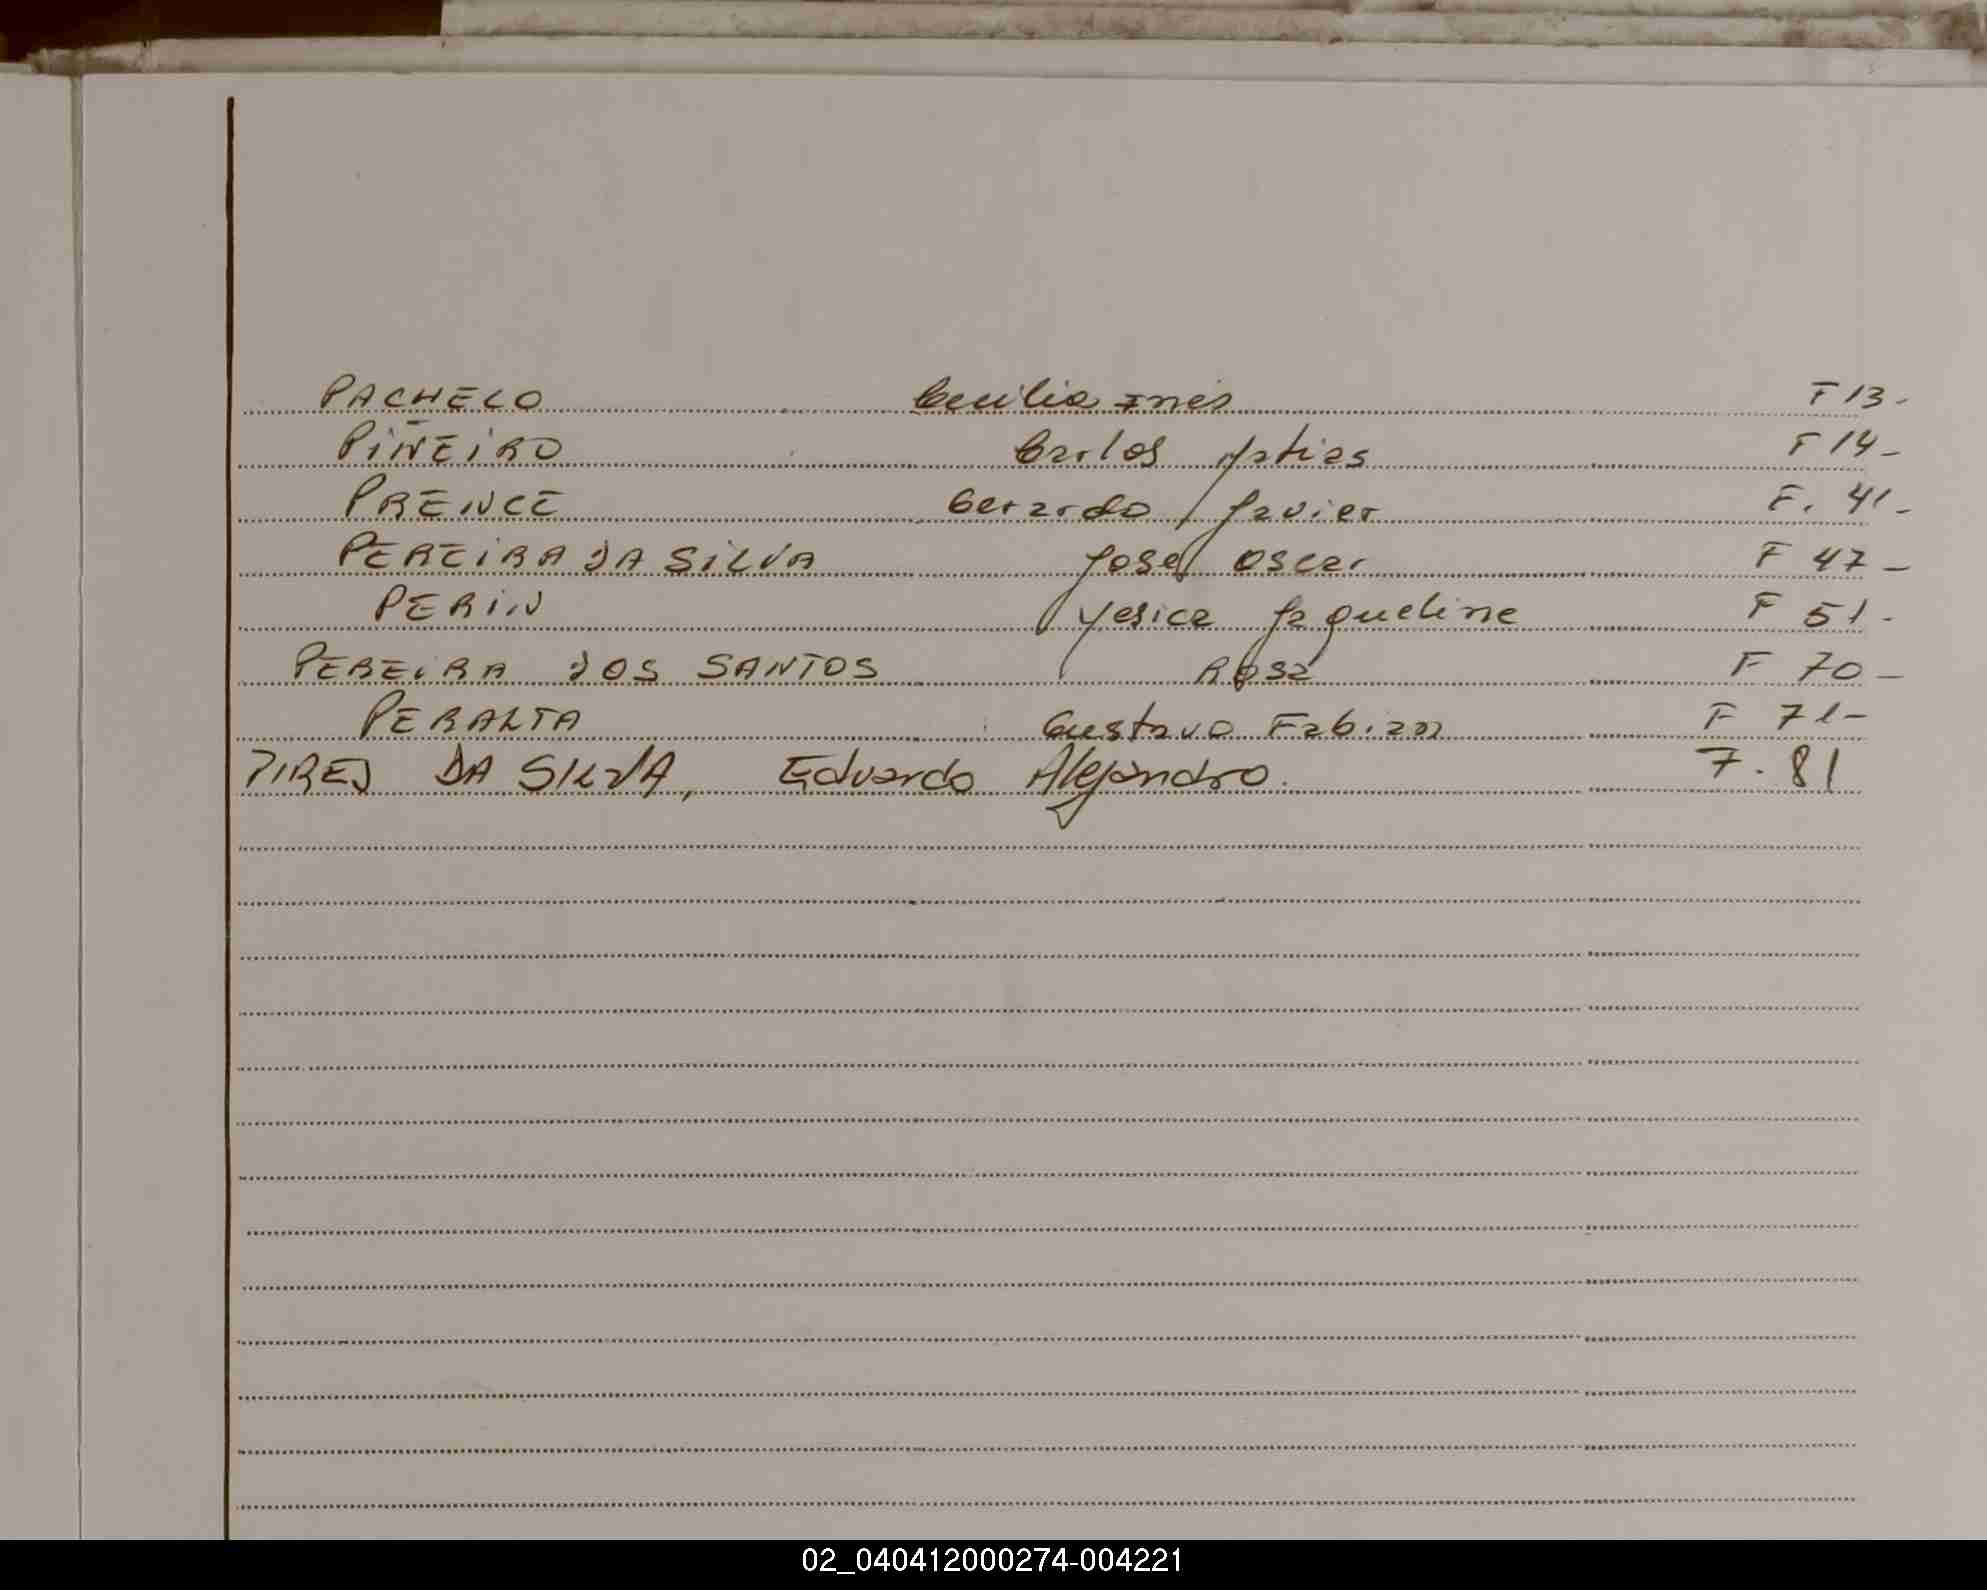 PACHECO Cecilia Ines F 13-
PIÑEIRO Carlos Matias F 14-
PRENCE Gerardo Javier F. 41-
PEREIRA DA SILVA Jose Oscar F 47-
PERIN Yesica Jaqueline F 51-
PEREIRA DOS SANTOS Rosa F 70-
PERALTA Gustavo Fabian F 71-
PIRES DA SILVA, Eduardo Alejandro. F. 81
02_040412000274-004221